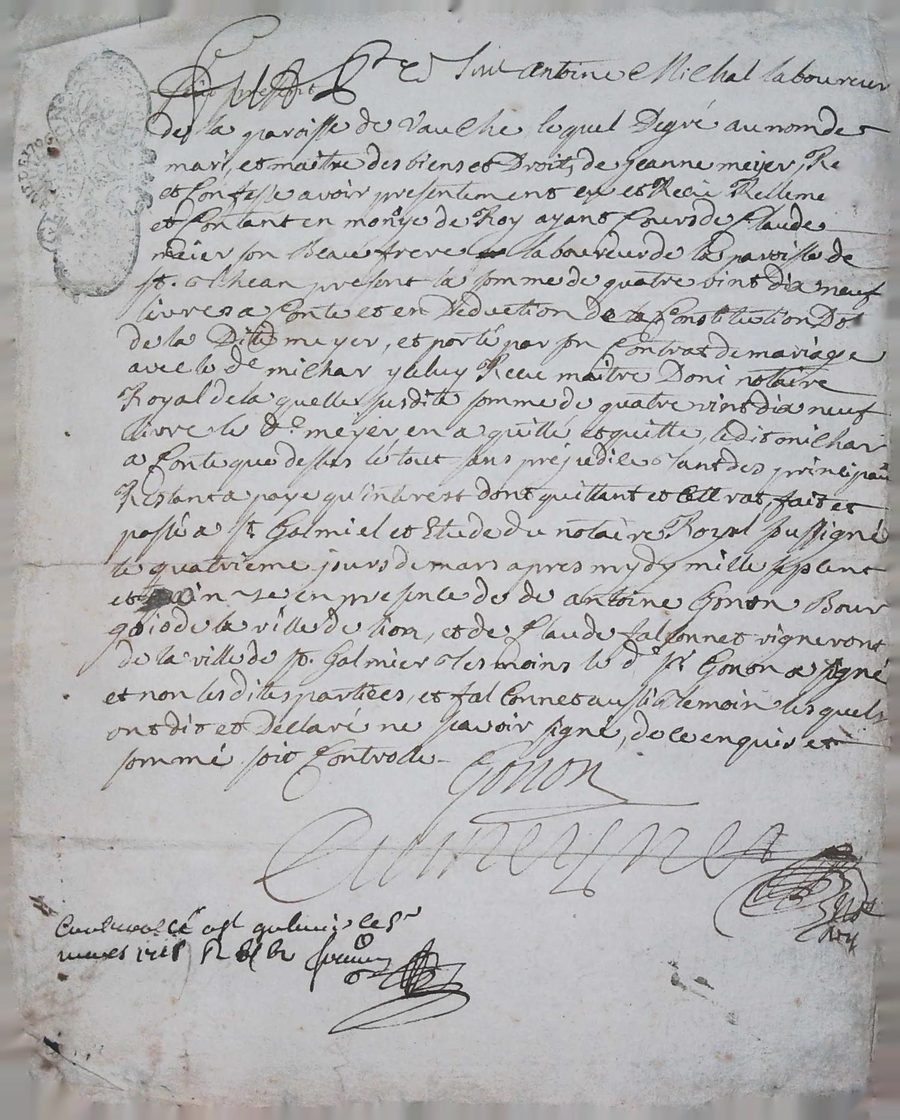 fut present Sieur antoine Michal laboureur
de la paroisse de vauche lequel Degré au nom de
mari, et maitre des biens et Droits de jeanne meyer, Re
et Confesse avoir presentement eu et Receu Rellem
et Contant en monoye de Roy ayant Cours de Claude
meier son Beau frere laboureur de la paroisse de
st. present la somme de quatre vint dix neuf
livres a Conte et en Deduction de la Constitution Dot
de la Ditte meyer, et porté par son Contrat de mariage
avec le de. michar Receu maitre Doni notaire
Royal de la quelle susdite somme de quatre vint dix neuf
livre le de. meyer en a quitté et quitte, ledit michar
a Conte que dessus le tout sans prejudice tant des principau
Restant a paye qu'interest dont quittant et fait et
passé a st. Galmiel et Etude du notaire Royal sussigné
le quatrieme jours de mars apres mydy mille sept cent
et quinze en presence de de antoine Gonon Bour
gois de la ville de lion, et de Claude falconnet vigneront
de la ville de st. Galmier temoins le d. sr. Gonon a signé
et non les dites partiees, et falConnet aussi temoin lesquels
ont dit et Dellaré ne savoir signé, de ce enquis et
sommé soit Controlle
Gonon
Controllé a st galmier le 5e
mars 1715